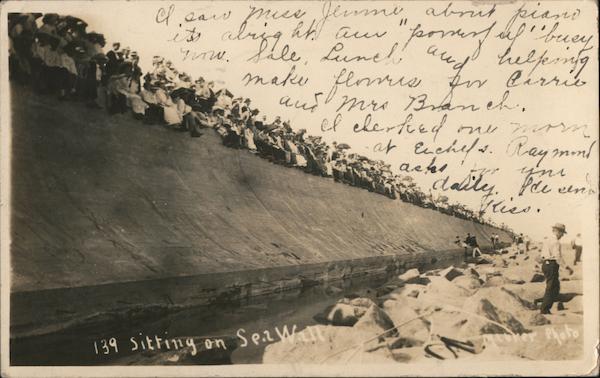 I saw Miss Jennie about piano
its alright am "powerful" busy
now. Sale, Lunch and helping
make flowers for Carrie
and Mrs Branch.
I clerked one morn
at Eichels. Raymond
asks for you
daily. He sends
Kiss.
139 Sitting on Sea Wall
Photo